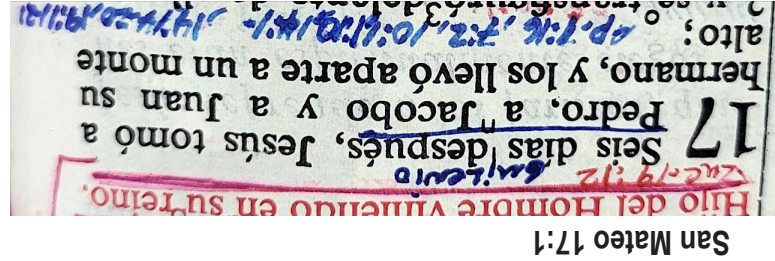 San Mateo 17:1
Hijo del Hombre viniendo en su reino.
Luc-19:12 6 milenio
17 Seis días después, Jesús tomó a
Pedro, a Jacobo y a Juan su
hermano, y los llevó aparte a un monte
alto;
2 y se transfiguró delante de